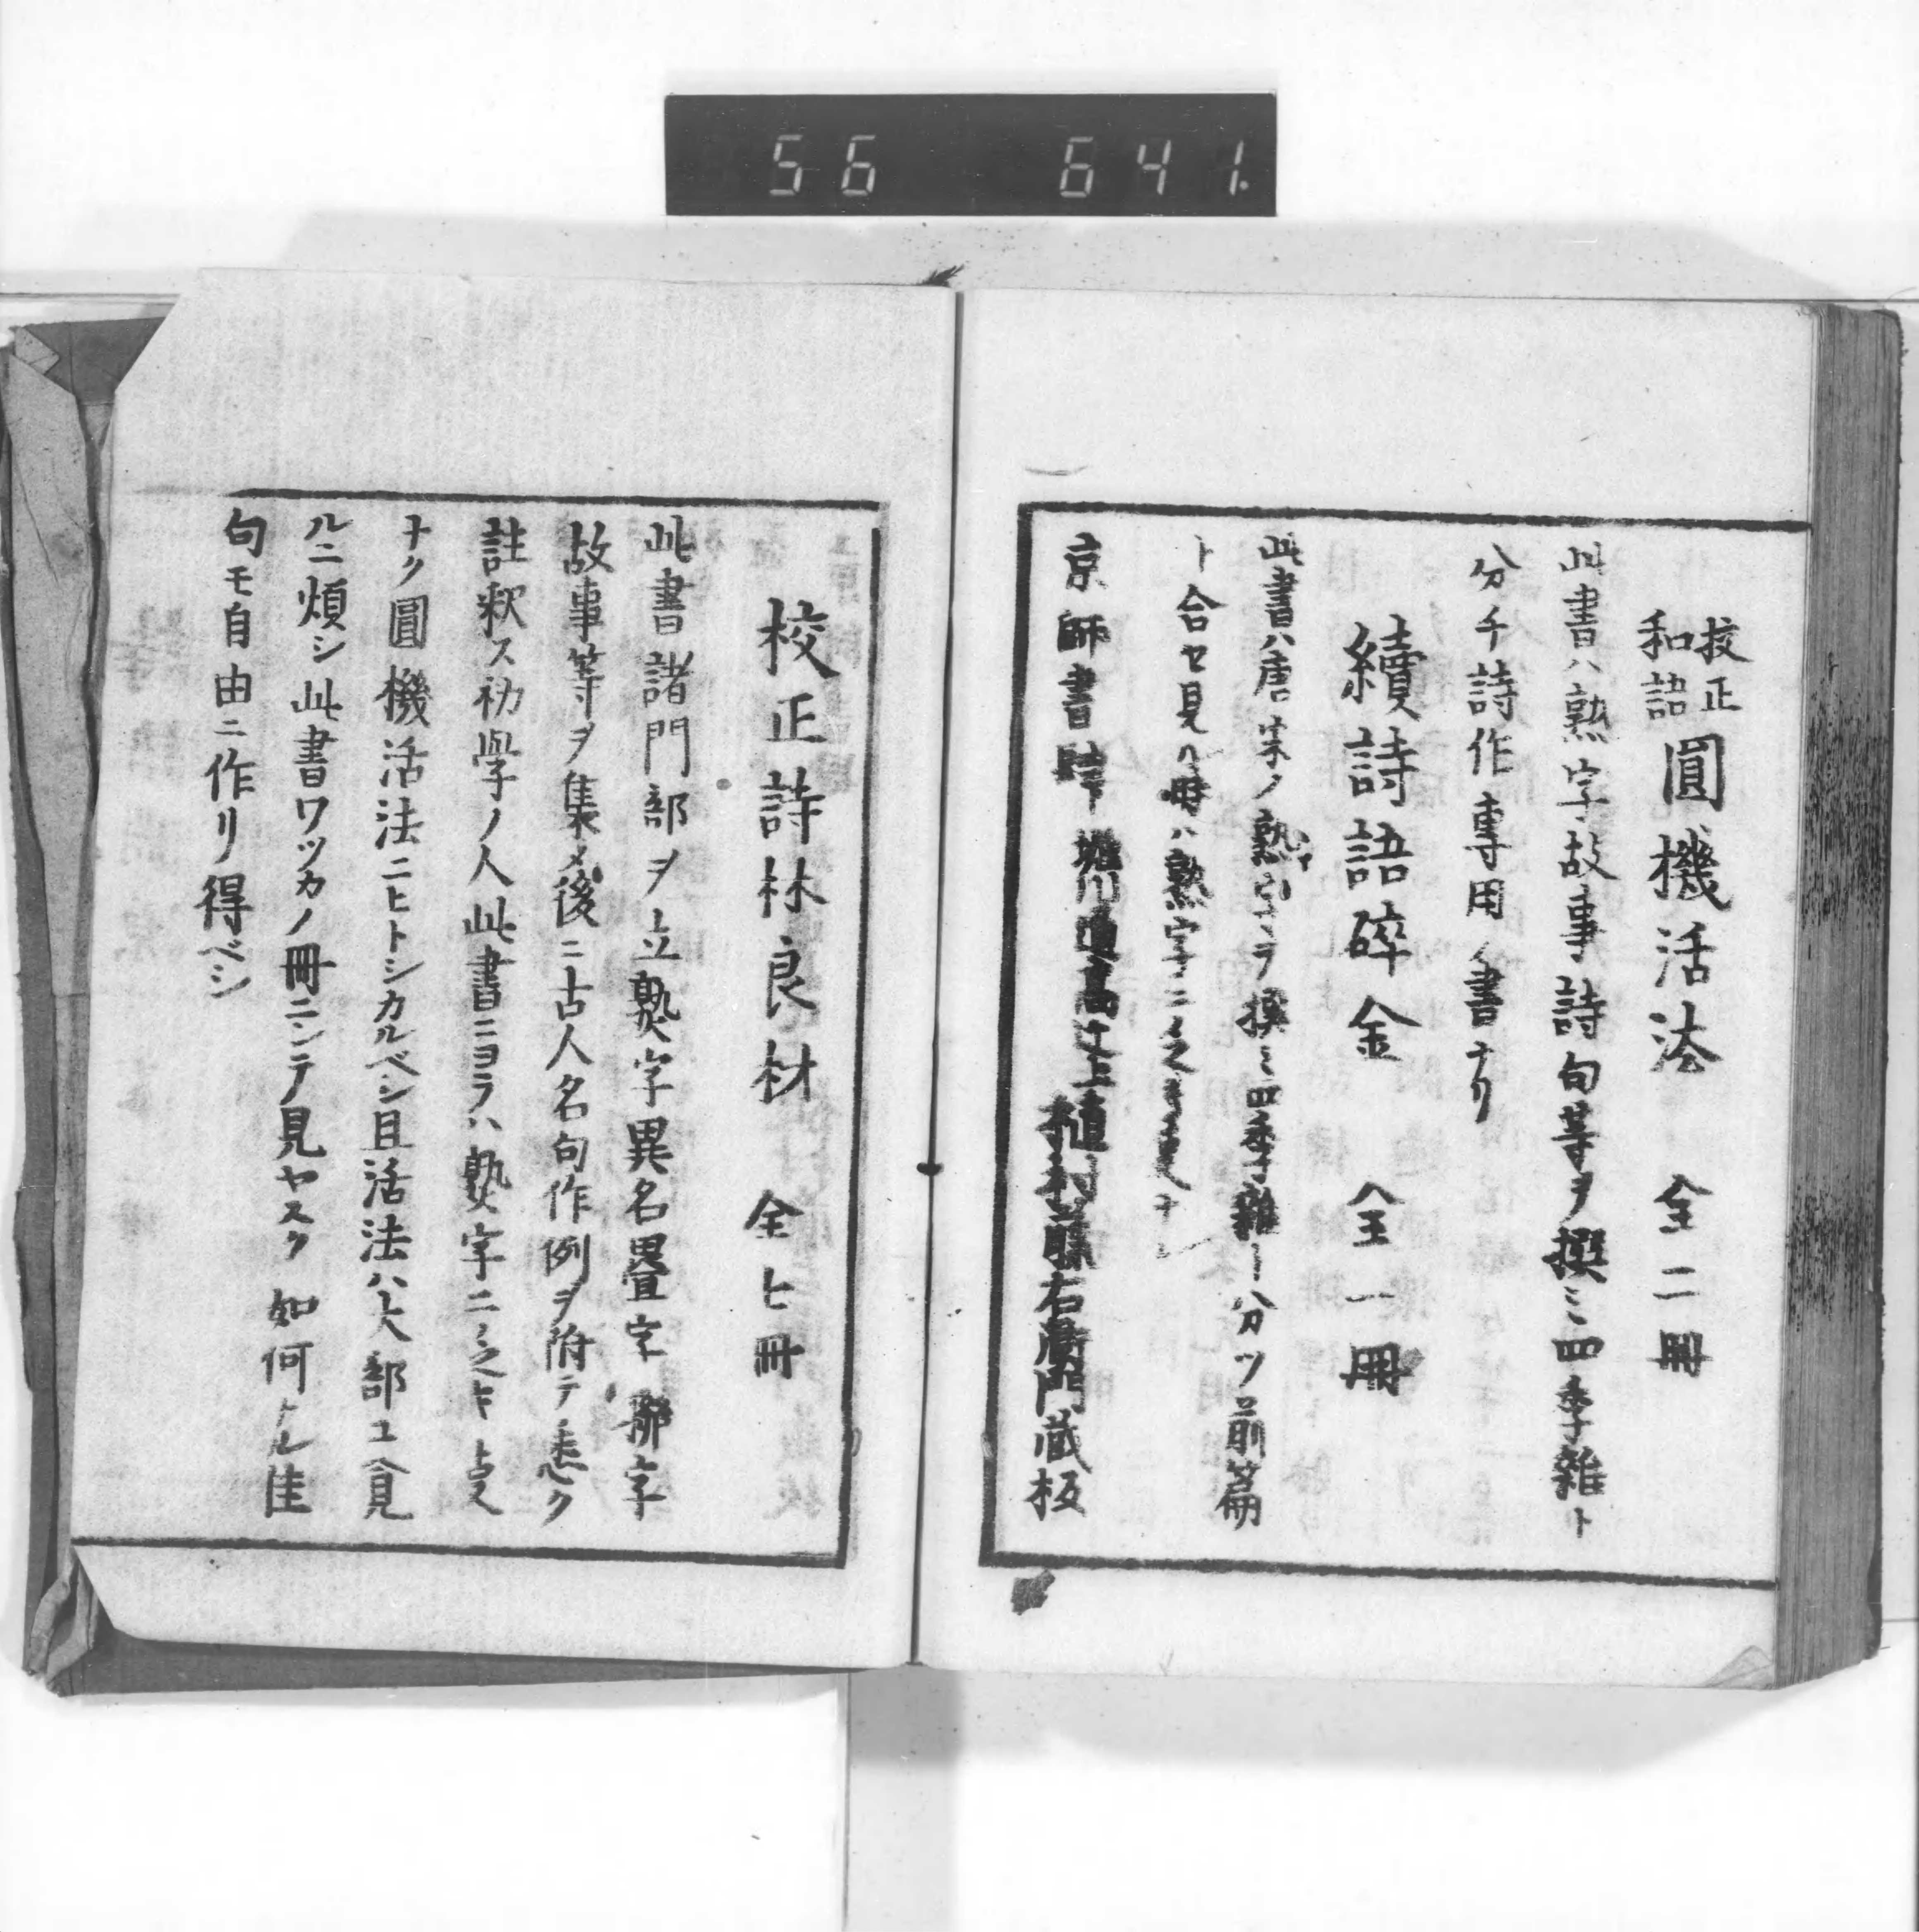 56 641.
校正
和語
圓機活法 全二冊
此書ハ熟字故事詩句等ヲ撰ミ四季雑ト
分チ詩作専用ノ書ナリ
續詩語碎金 全一冊
此書ハ唐宋ノ熟字ヲ撰ミ四季雑ト分ツ前篇
ト合セ見ハ毋ハ熟字ニ乏キ事ナシ
京師書肆 堀川通高辻上 植村藤右衛門蔵板
校正詩林良材 全七冊
此書諸門部ヲ立熟字異名畳字聯字
故事等ヲ集メ後ニ古人名句作例ヲ附テ悉ク
註釈ス初學ノ人此書ニヨラハ熟字ニ乏キ支
ナク圓機活法ニヒトシカルベシ且活法ハ大部ユヘ見
ルニ煩シ此書ワツカノ冊ニシテ見ヤスク如何ナル佳
句モ自由ニ作リ得ベシ